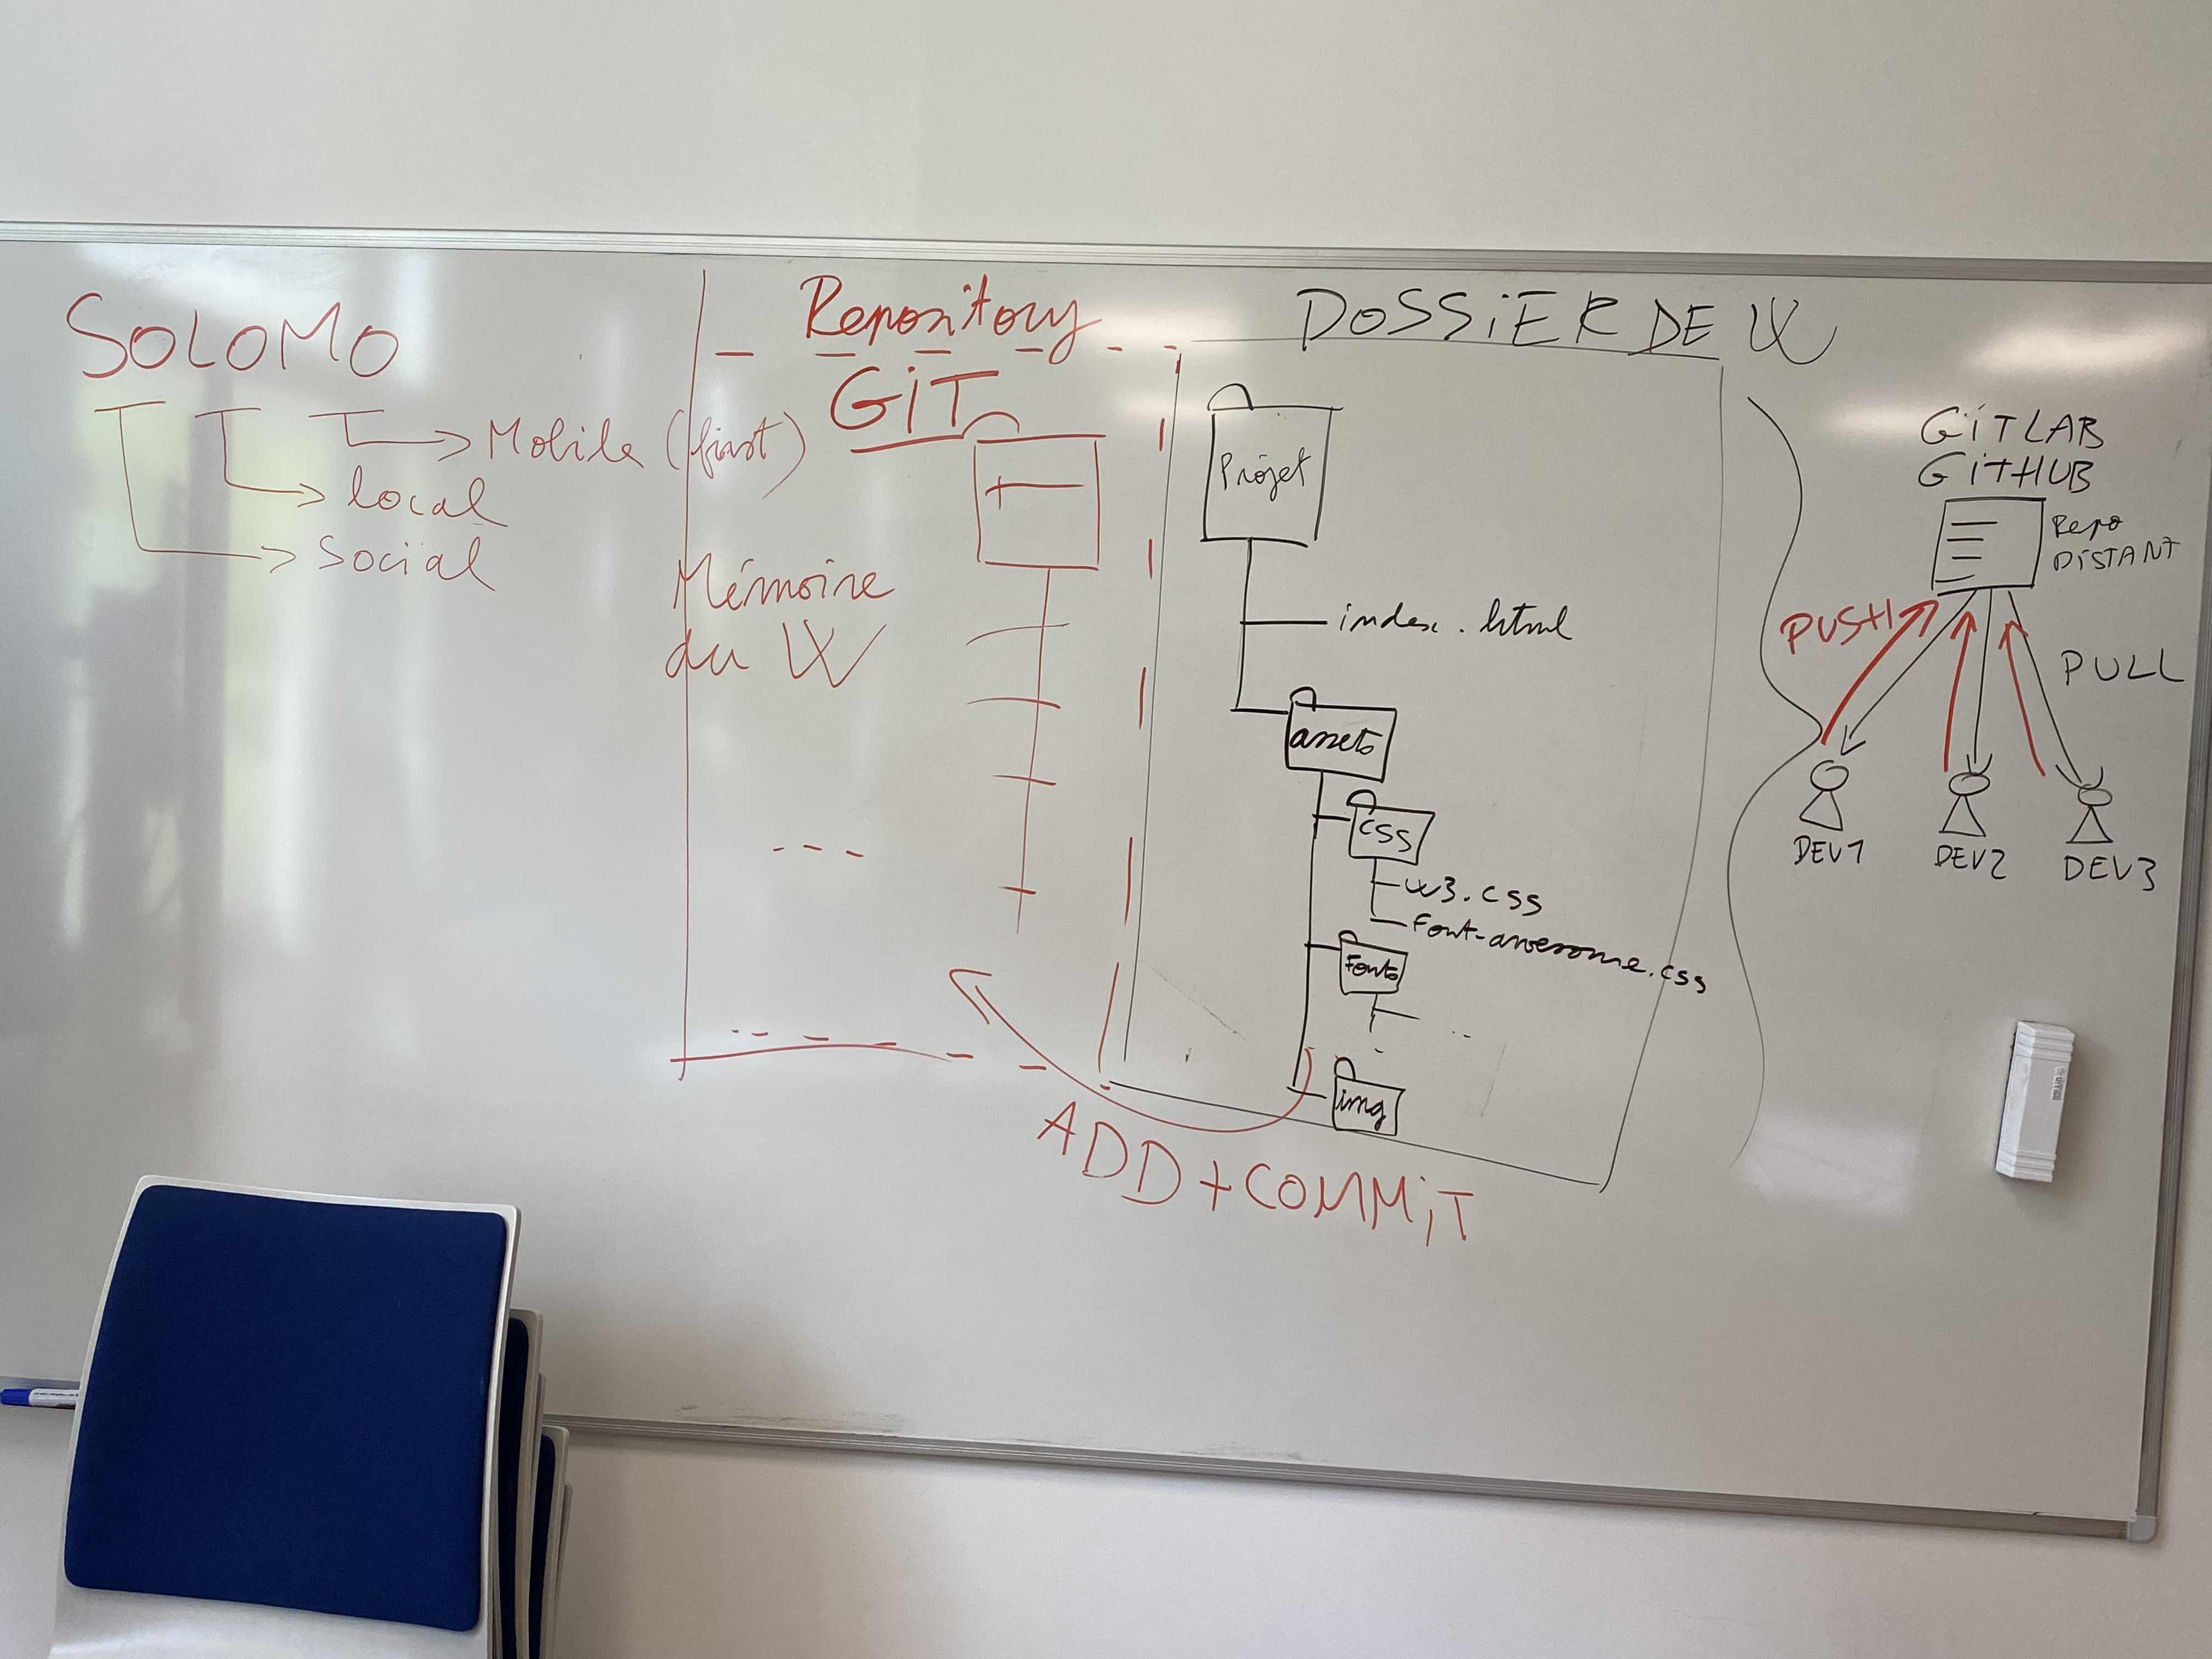 SOLOMO
Mobile (first)
local
Social
Repository
GIT
Mémoire
du W
DOSSIER DE W
Projet
index.html
assets
css
w3.css
Font-awesome.css
Fonts
img
ADD + COMMIT
GITLAB
GITHUB
Repo
DISTANT
PUSH
PULL
DEV1
DEV2
DEV3